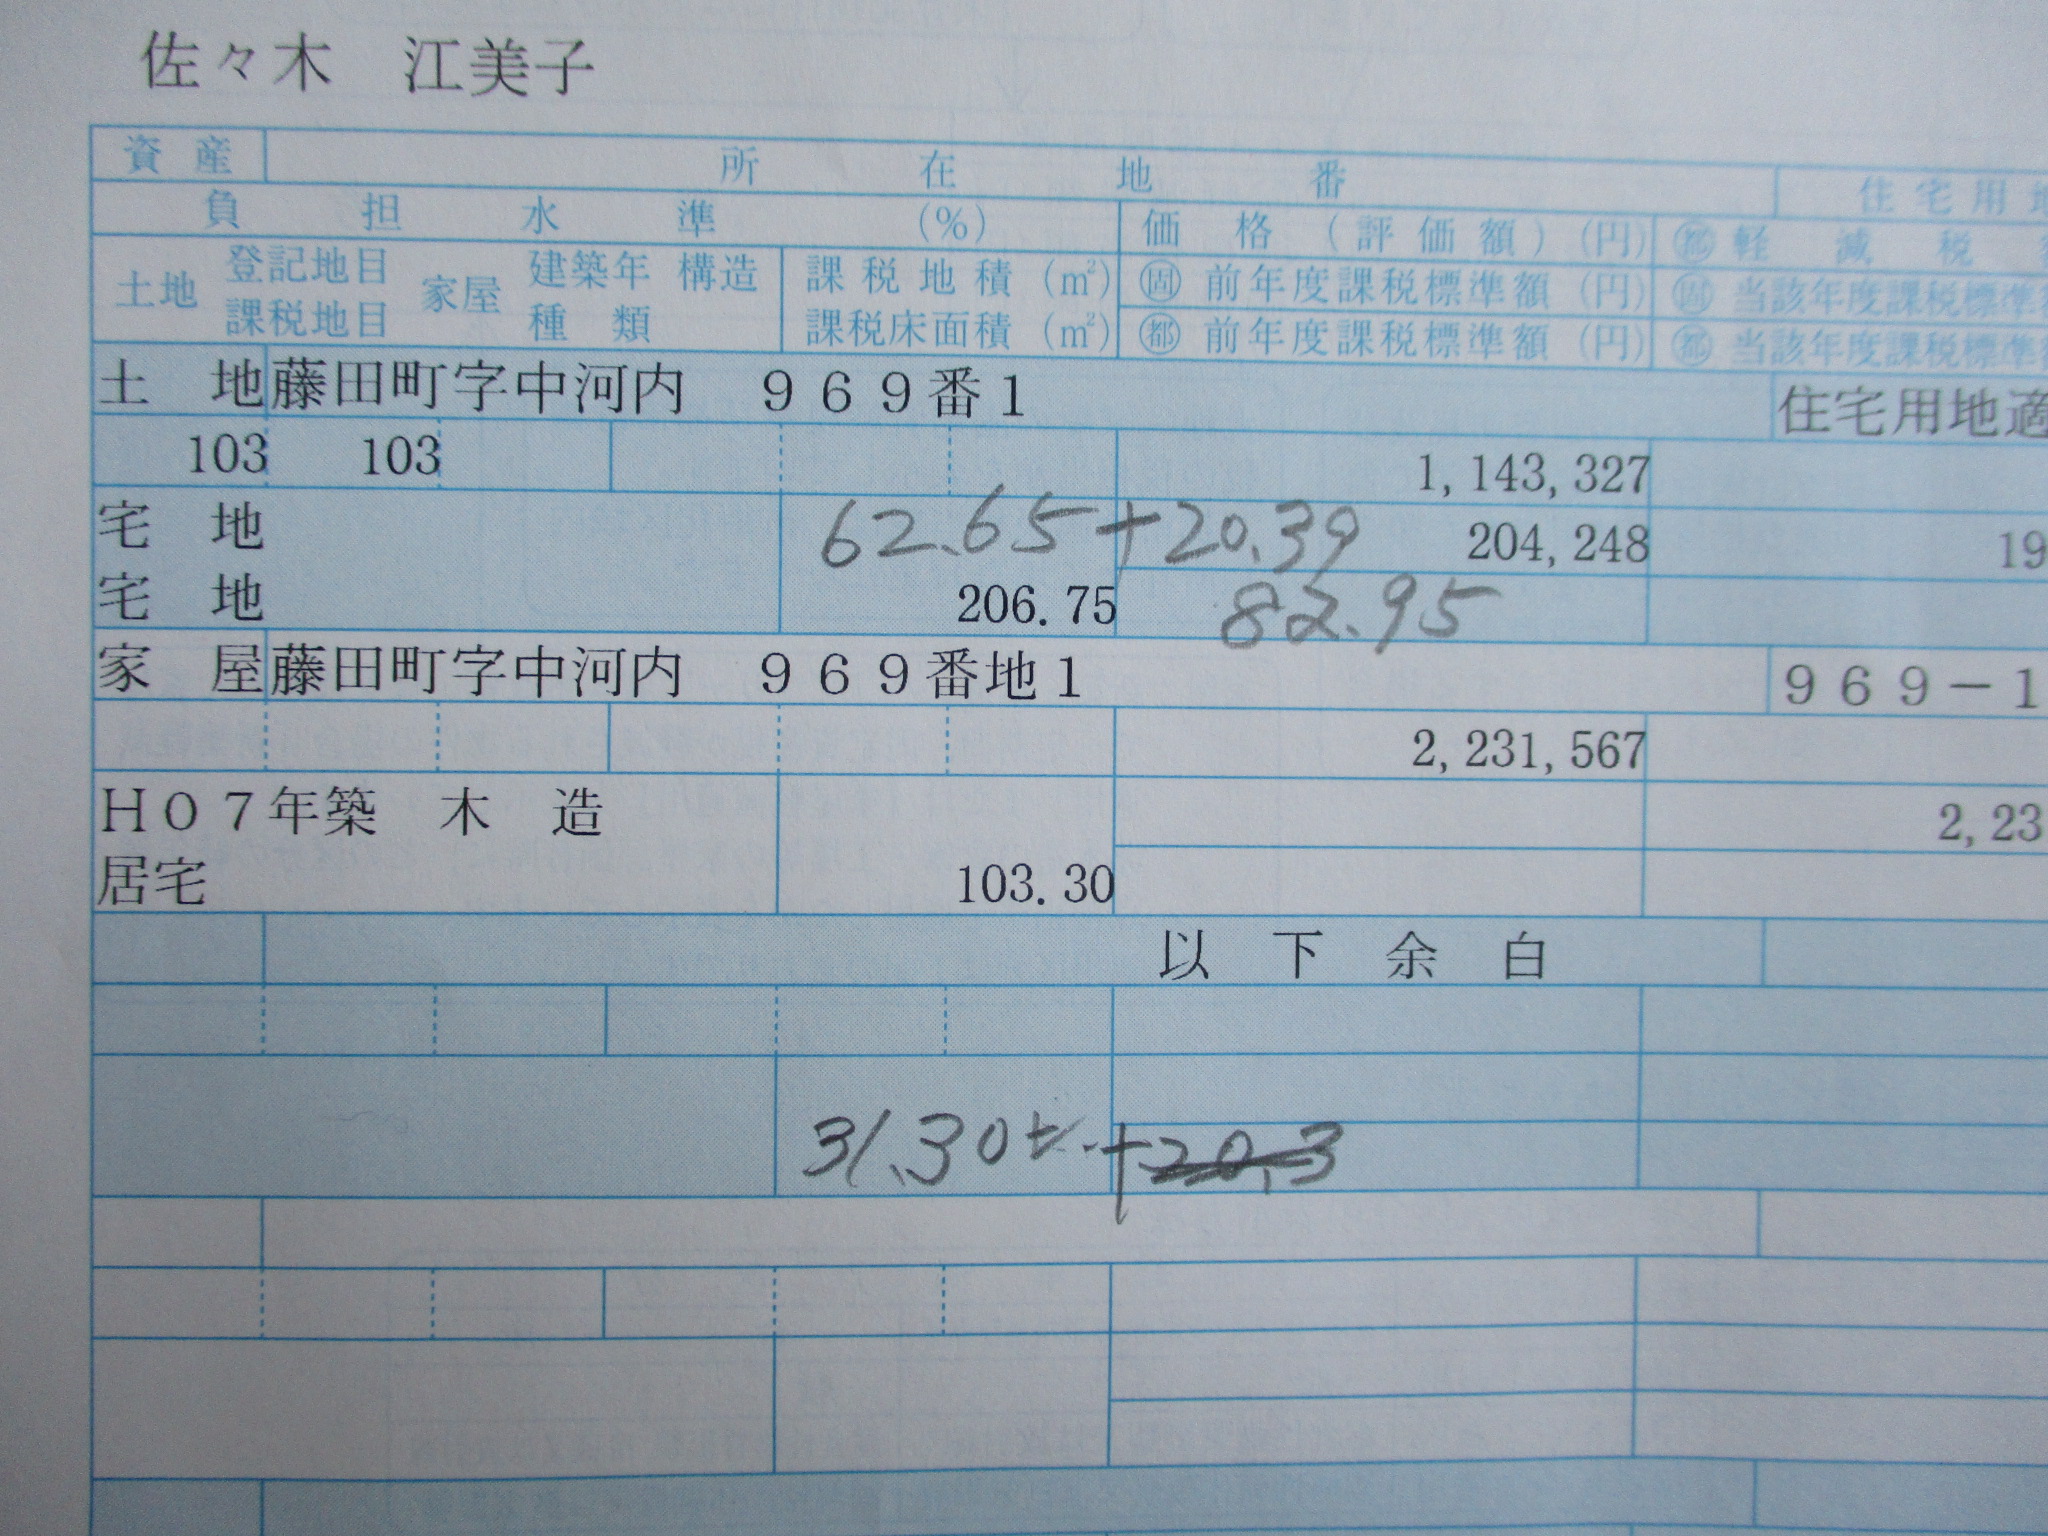 佐々木　江美子
資産 所在地番 住宅用地
負担水準 (%) 価格(評価額)(円) 都 軽減税
土地 登記地目 家屋 建築年 構造 課税地積(㎡) 固 前年度課税標準額(円) 固 当該年度課税標準
課税地目 種類 課税床面積(㎡) 都 前年度課税標準額(円) 都 当該年度課税標準
土　地 藤田町字中河内　９６９番１ 住宅用地適
103 103 1,143,327
宅　地 62.65+20.39 204,248 19
宅　地 206.75 82.95
家　屋 藤田町字中河内　９６９番地１ ９６９－１
2,231,567
Ｈ０７年築　木　造 2,23
居宅 103.30
以　下　余　白
31.30 + 20.3